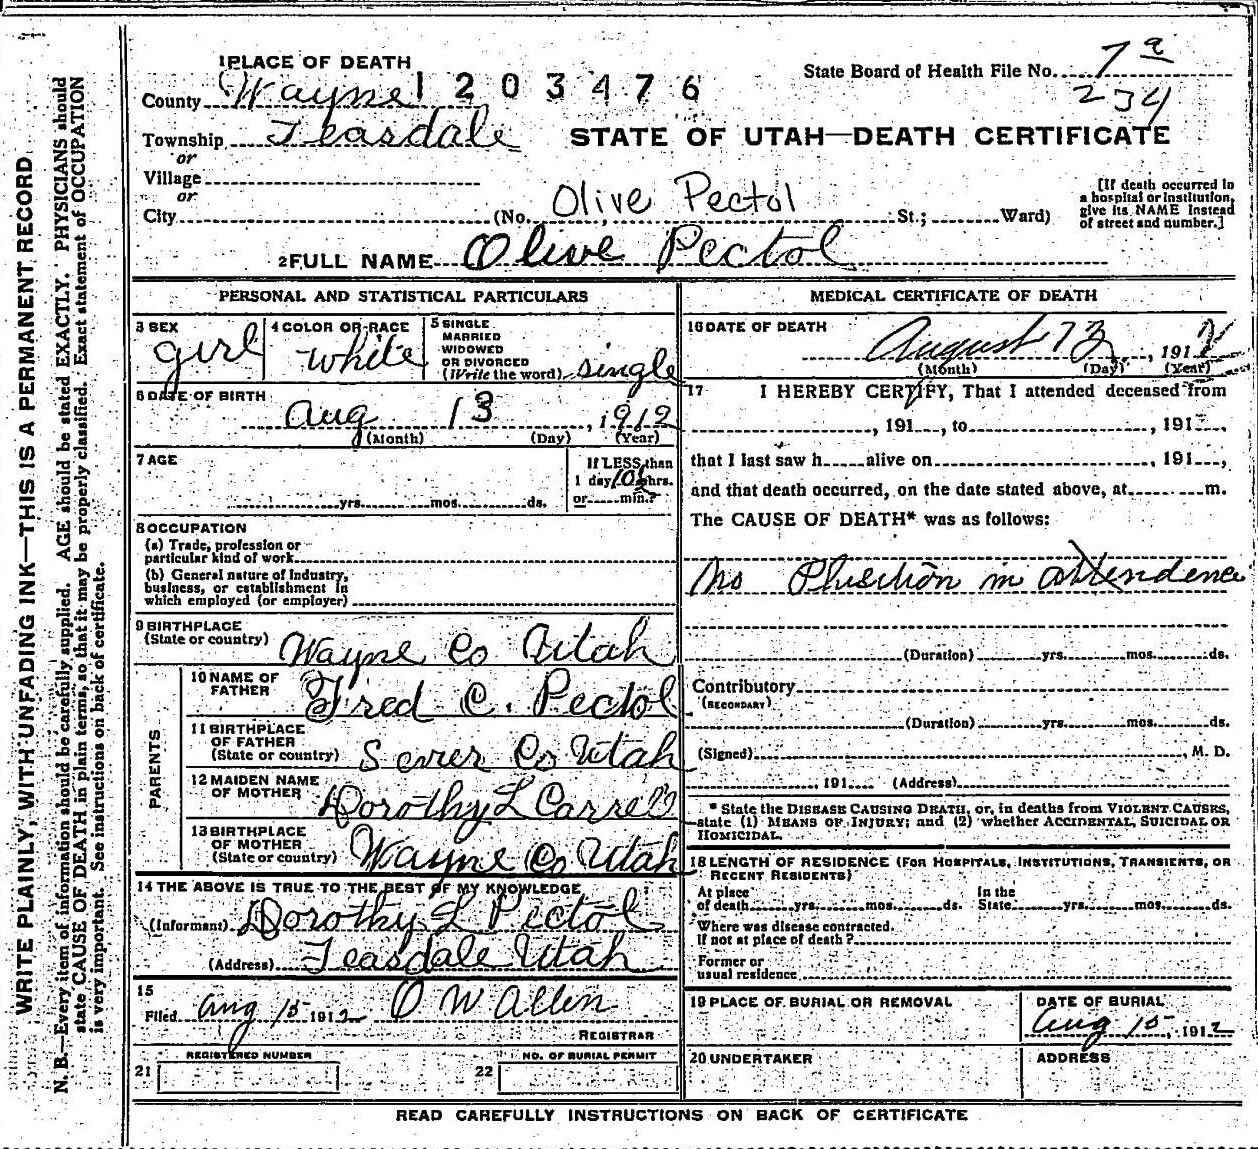 1 PLACE OF DEATH
County Wayne 1203476
State Board of Health File No. 7a
234
Township Teasdale
STATE OF UTAH—DEATH CERTIFICATE
or
Village
or
City (No. Olive Pectol St.; Ward)
[If death occurred in
a hospital or institution,
give its NAME instead
of street and number.]
2 FULL NAME Olive Pectol
PERSONAL AND STATISTICAL PARTICULARS
3 SEX
girl
4 COLOR OR RACE
white
5 SINGLE
MARRIED
WIDOWED
OR DIVORCED
(Write the word) single
6 DATE OF BIRTH
Aug 13, 1912
(Month) (Day) (Year)
7 AGE
yrs. mos. ds.
If LESS than
1 day, 10½ hrs.
or min.?
8 OCCUPATION
(a) Trade, profession or
particular kind of work
(b) General nature of industry,
business, or establishment in
which employed (or employer)
9 BIRTHPLACE
(State or country) Wayne Co Utah
PARENTS
10 NAME OF
FATHER Fred C. Pectol
11 BIRTHPLACE
OF FATHER
(State or country) Sevier Co Utah
12 MAIDEN NAME
OF MOTHER Dorothy L Carrell
13 BIRTHPLACE
OF MOTHER
(State or country) Wayne Co Utah
14 THE ABOVE IS TRUE TO THE BEST OF MY KNOWLEDGE
(Informant) Dorothy L Pectol
(Address) Teasdale Utah
15
Filed Aug 15 1912 O W Allen
REGISTRAR
REGISTERED NUMBER
21
NO. OF BURIAL PERMIT
22
MEDICAL CERTIFICATE OF DEATH
16 DATE OF DEATH
August 13, 1912
(Month) (Day) (Year)
17 I HEREBY CERTIFY, That I attended deceased from
, 191 , to , 191 ,
that I last saw h alive on , 191 ,
and that death occurred, on the date stated above, at m.
The CAUSE OF DEATH* was as follows:
No Phusition in attendence
(Duration) yrs. mos. ds.
Contributory
(SECONDARY)
(Duration) yrs. mos. ds.
(Signed) , M. D.
, 191 (Address)
* State the DISEASE CAUSING DEATH, or, in deaths from VIOLENT CAUSES,
state (1) MEANS OF INJURY; and (2) whether ACCIDENTAL, SUICIDAL OR
HOMICIDAL.
18 LENGTH OF RESIDENCE (FOR HOSPITALS, INSTITUTIONS, TRANSIENTS, OR
RECENT RESIDENTS)
At place
of death yrs. mos. ds.
In the
State yrs. mos. ds.
Where was disease contracted.
If not at place of death?
Former or
usual residence
19 PLACE OF BURIAL OR REMOVAL
DATE OF BURIAL
Aug 15, 1912
20 UNDERTAKER
ADDRESS
READ CAREFULLY INSTRUCTIONS ON BACK OF CERTIFICATE
WRITE PLAINLY, WITH UNFADING INK—THIS IS A PERMANENT RECORD
N. B.—Every item of information should be carefully supplied. AGE should be stated EXACTLY. PHYSICIANS should
state CAUSE OF DEATH in plain terms, so that it may be properly classified. Exact statement of OCCUPATION
is very important. See instructions on back of certificate.